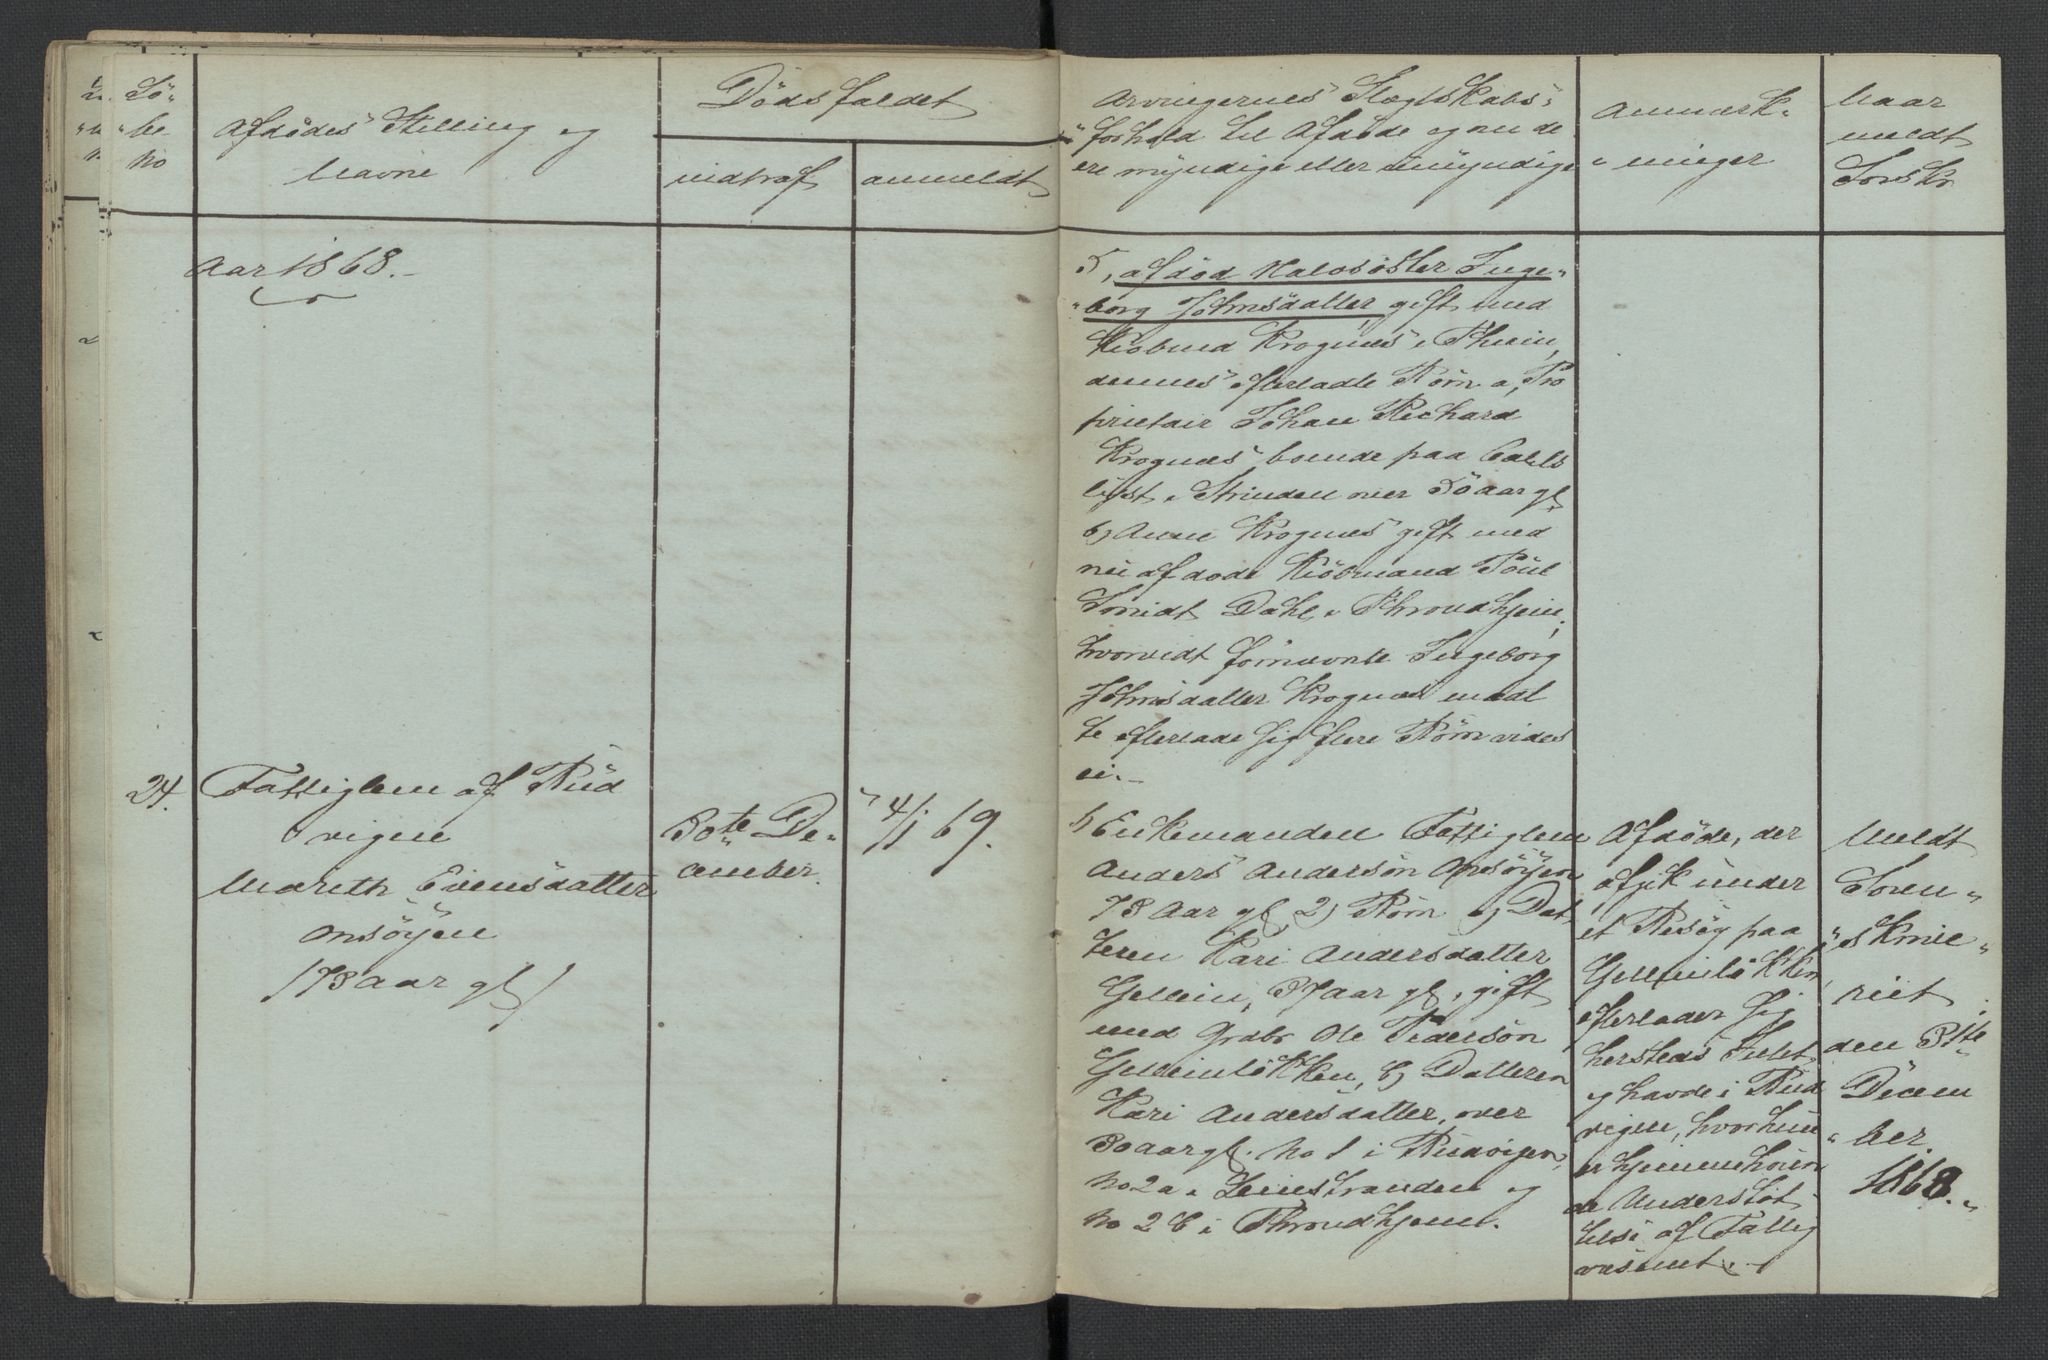 Lö-
be
No
Afdødes Stilling og
Navne
Dødsfaldet
indtraf
anmeldt
Arvingernes Slægtskabs-
forhold til Afdøde og om de
ere myndige eller umyndige
Anmærk-
ninger
Naar
meldt
Sorskr
Aar 1868.-
5, afdød Halvsøster Inge-
borg Johnsdatter gift med
Kiøbmd Krognes i Thiem,
dennes efterladte Børn a, Pro
prietair Johan Richard
Krognes boende paa
lyst i Strinden over 50 aar gl
b, Anne Krognes gift med
nu afdøde Kiøbmand Poul
Smidt Dahl i Throndhjem,
hvorvidt fornævnte Ingeborg
Johnsdatter Krognes maat
te efterlade sig flere Børn vides
ei.-
24.
Fattiglem af Bud
vigen
Mareth Evensdatter
Onsøyen
/78 aar gl/
30te De-
cember.
4/1 69.
1, Enkemanden Fattiglem
Anders Andersøn Onsøyen
78 Aar gl, 2, Børn a, Dat
teren Kari Andersdatter
Gellein, 37 aar gl, gift
med Grdbr Ole Pedersøn
Gelleinløkken, b, Datteren
Kari Andersdatter, over
30 aar gl. No 1 i Budvigen,
No 2 a i Leinstranden og
No 2 b i Throndhjem.
Afdøde, der
afgik under
et Besøg paa
Gelleinløkken
efterlader sig
hersteds Intet
og havde i Bud
vigen, hvor hun
er hjemmehøren
de Understøt
telse af Fattig
væsenet.-
Meldt
Soren-
skrive-
riet
den 31te
Decem
ber
1868.